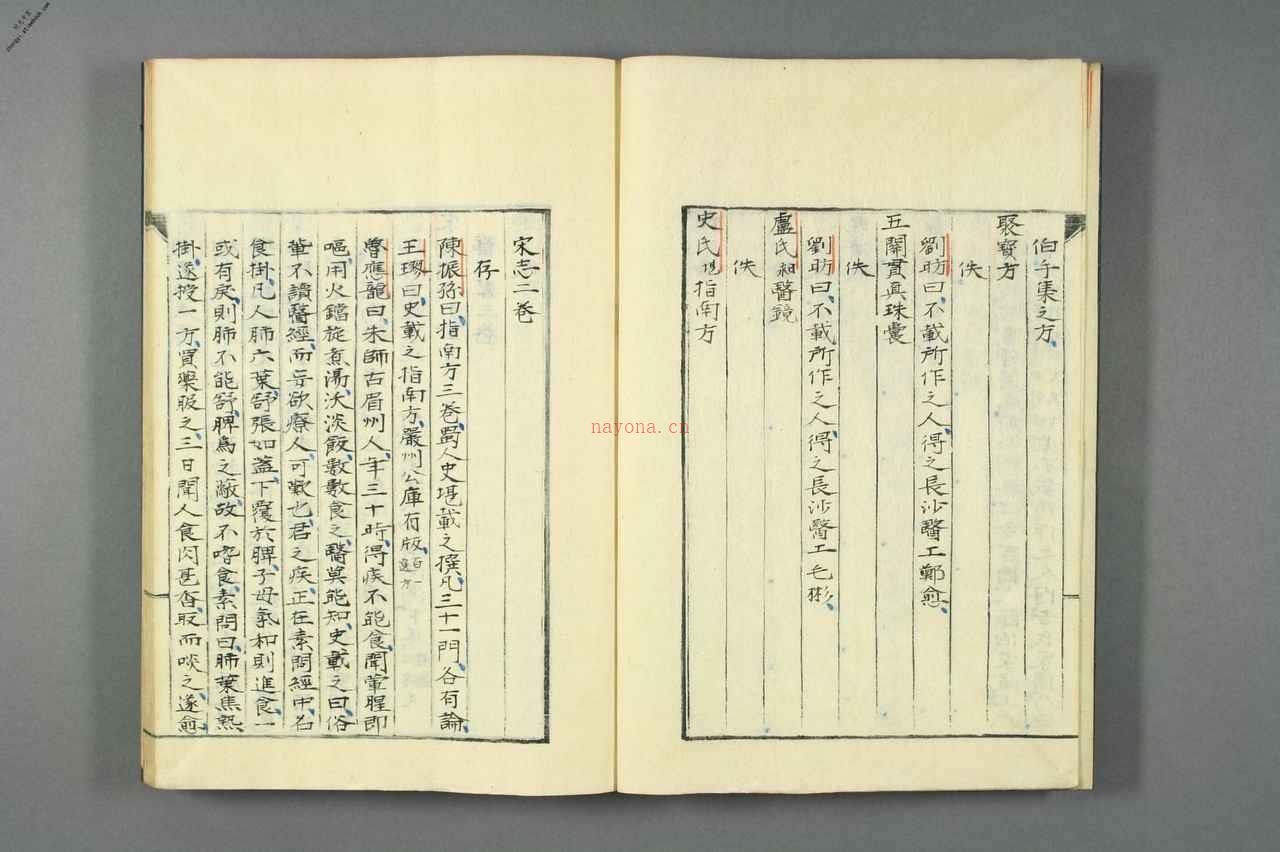 伯子集之方
聚寶方
佚
劉昉曰不載所作之人得之長沙醫工鄭愈
五關貫真珠囊
佚
劉昉曰不載所作之人得之長沙醫工毛彬
盧氏祖醫鏡
佚
史氏堪指南方
宋志二卷
存
陳振孫曰指南方三卷蜀人史堪載之撰凡三十一門各有論
王璆曰史載之指南方嚴州公庫有版百一選方
魯應龍曰朱師古眉州人年三十時得疾不能食聞葷腥即
嘔用火鐺旋煮湯沃淡飯數數食之醫莫能知史載之曰俗
輩不讀醫經而妄欲療人可歎也君之疾正在素問經中名
食掛凡人肺六葉舒張如蓋下覆於脾子母氣和則進食一
或有戾則肺不能舒脾爲之蔽故不嗜食素問曰肺葉焦熱
掛遂授一方買藥服之三日聞人食肉甚香取而啖之遂愈
nayona.cn